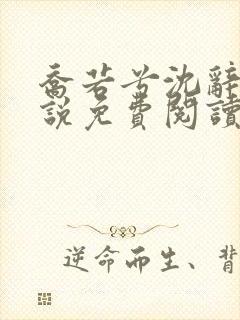 喬若兮沈辭
說免費閱讀
逆命而生、背